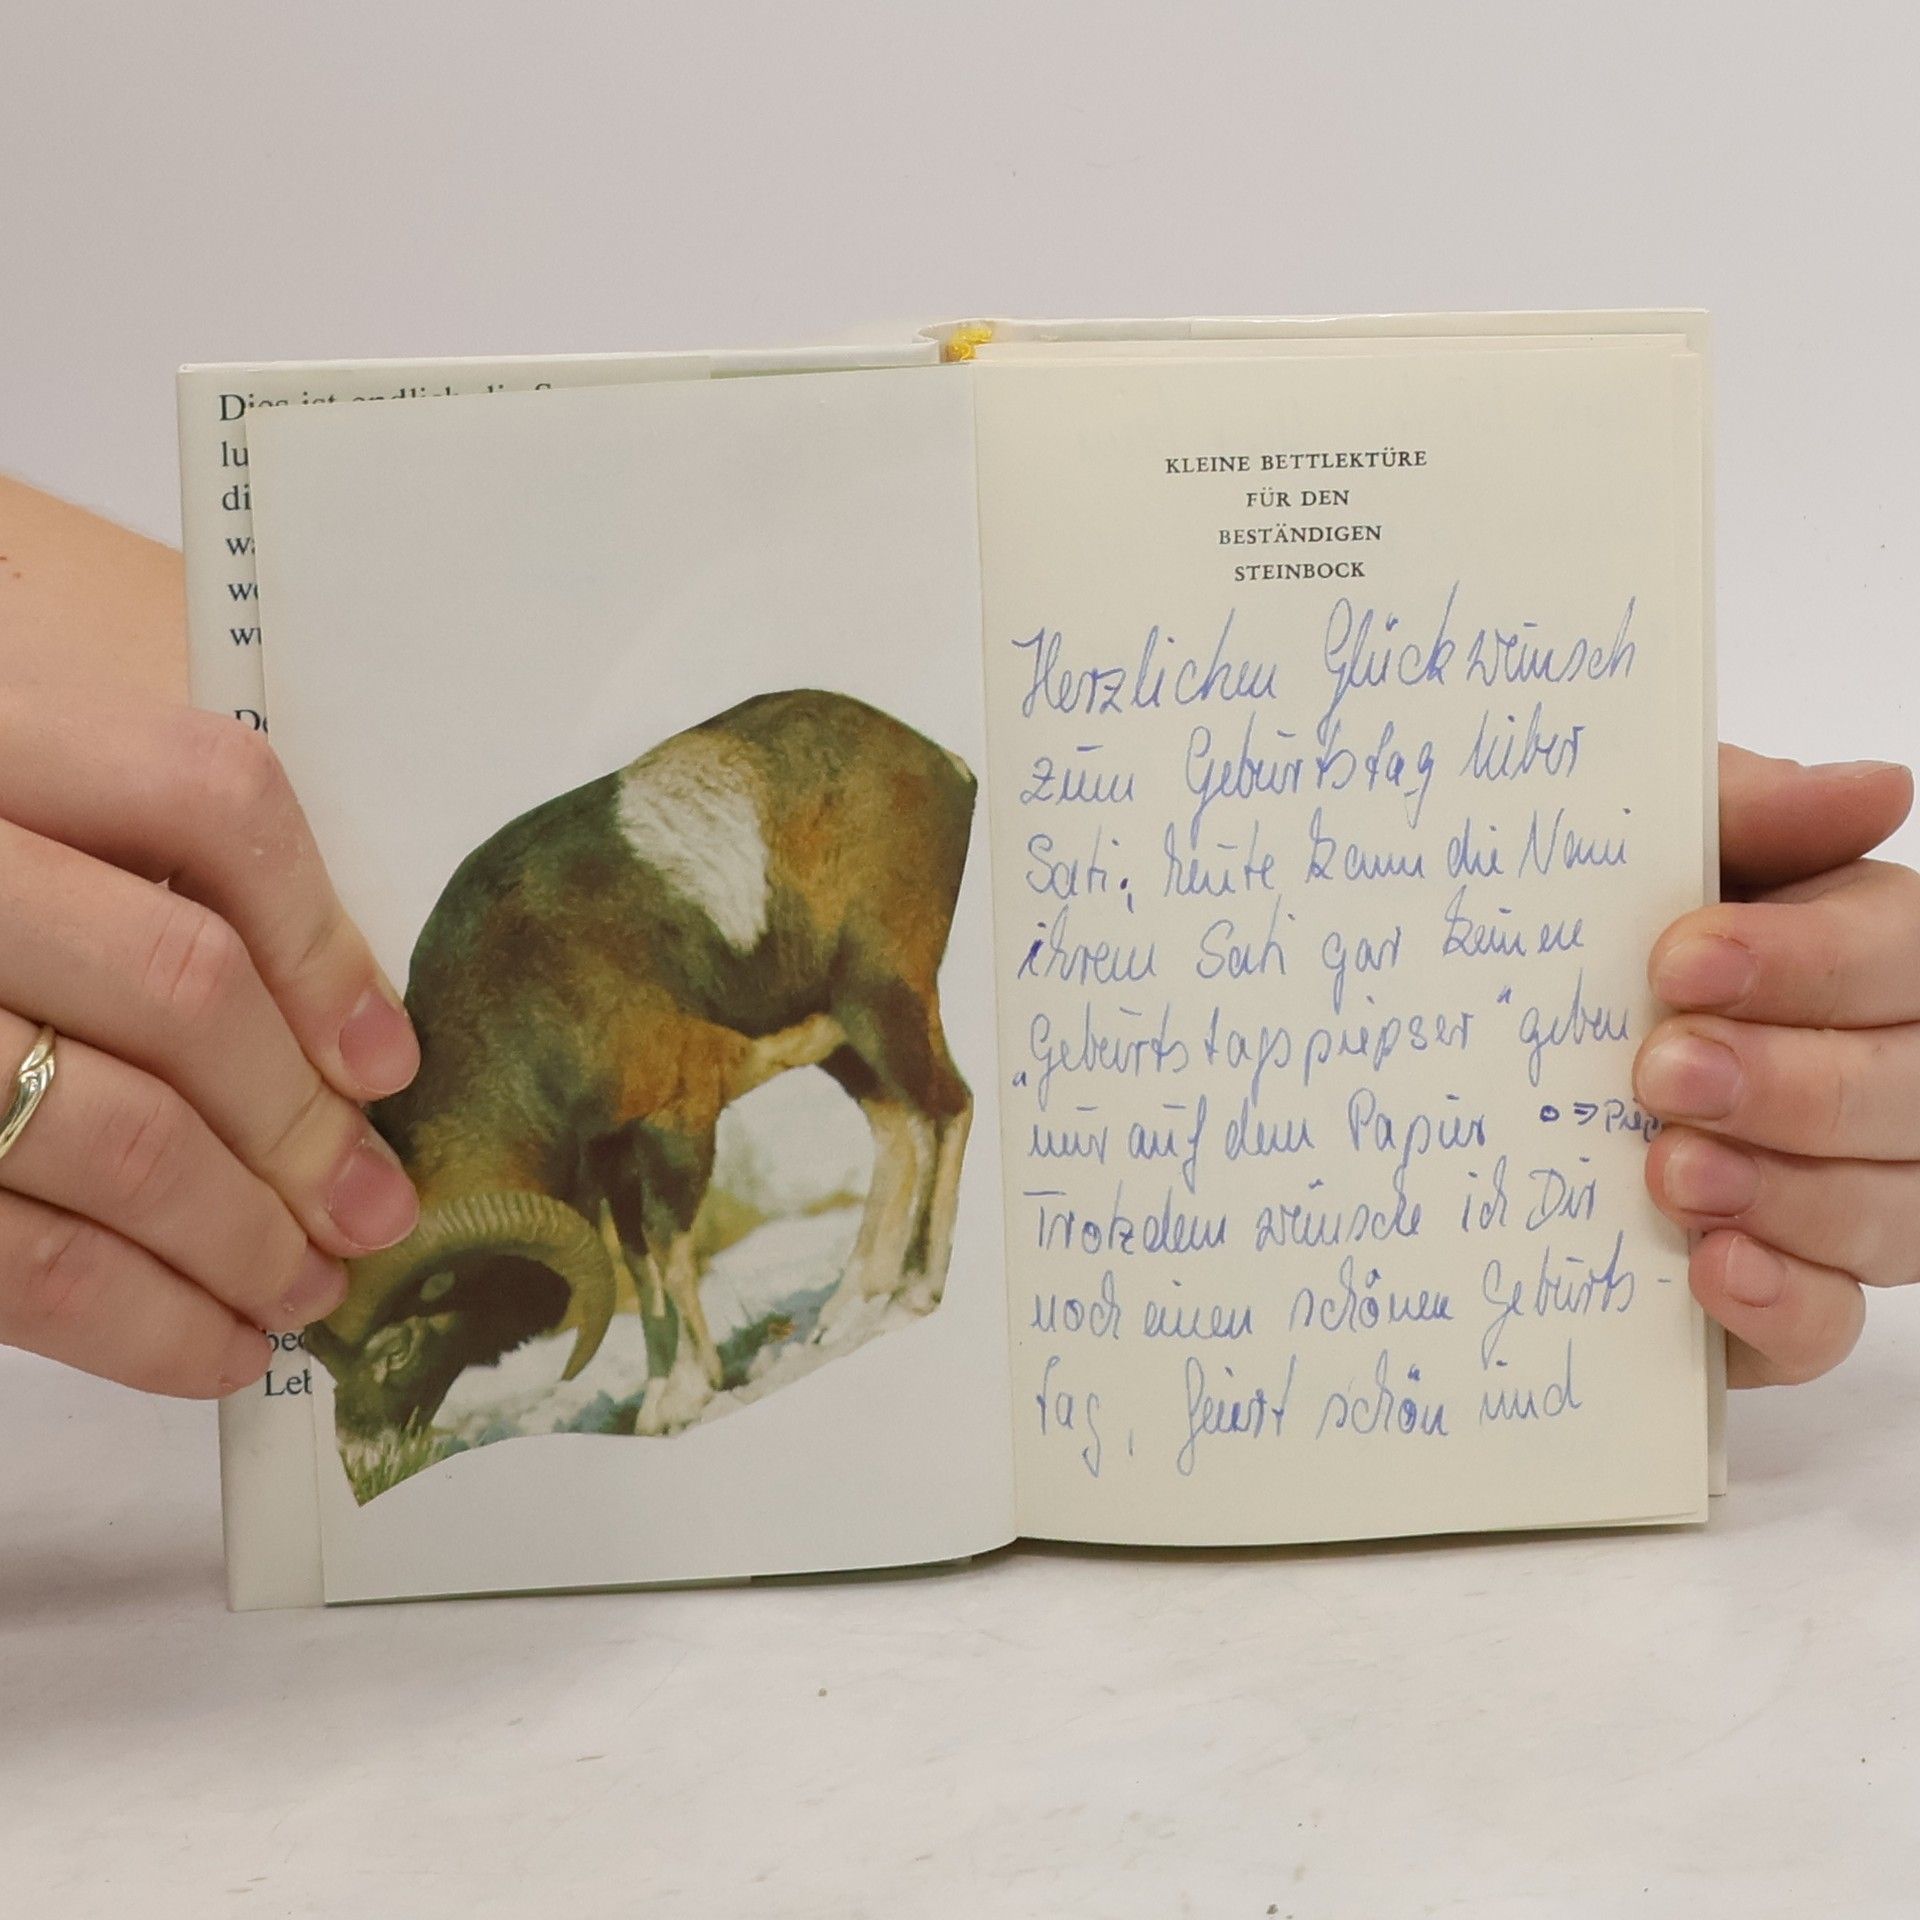 Dies ist endlich die
lu
di
wa
we
wu
De
bed
Leb
KLEINE BETTLEKTÜRE
FÜR DEN
BESTÄNDIGEN
STEINBOCK
Herzlichen Glückwunsch
zum Geburtstag lieber
Sati, heute kann die Nani
ihrem Sati gar keinen
„Geburtstagspiepser" geben
nur auf dem Papier o => Piep
Trotzdem wünsche ich Dir
noch einen schönen Geburts-
tag, feiert schön und